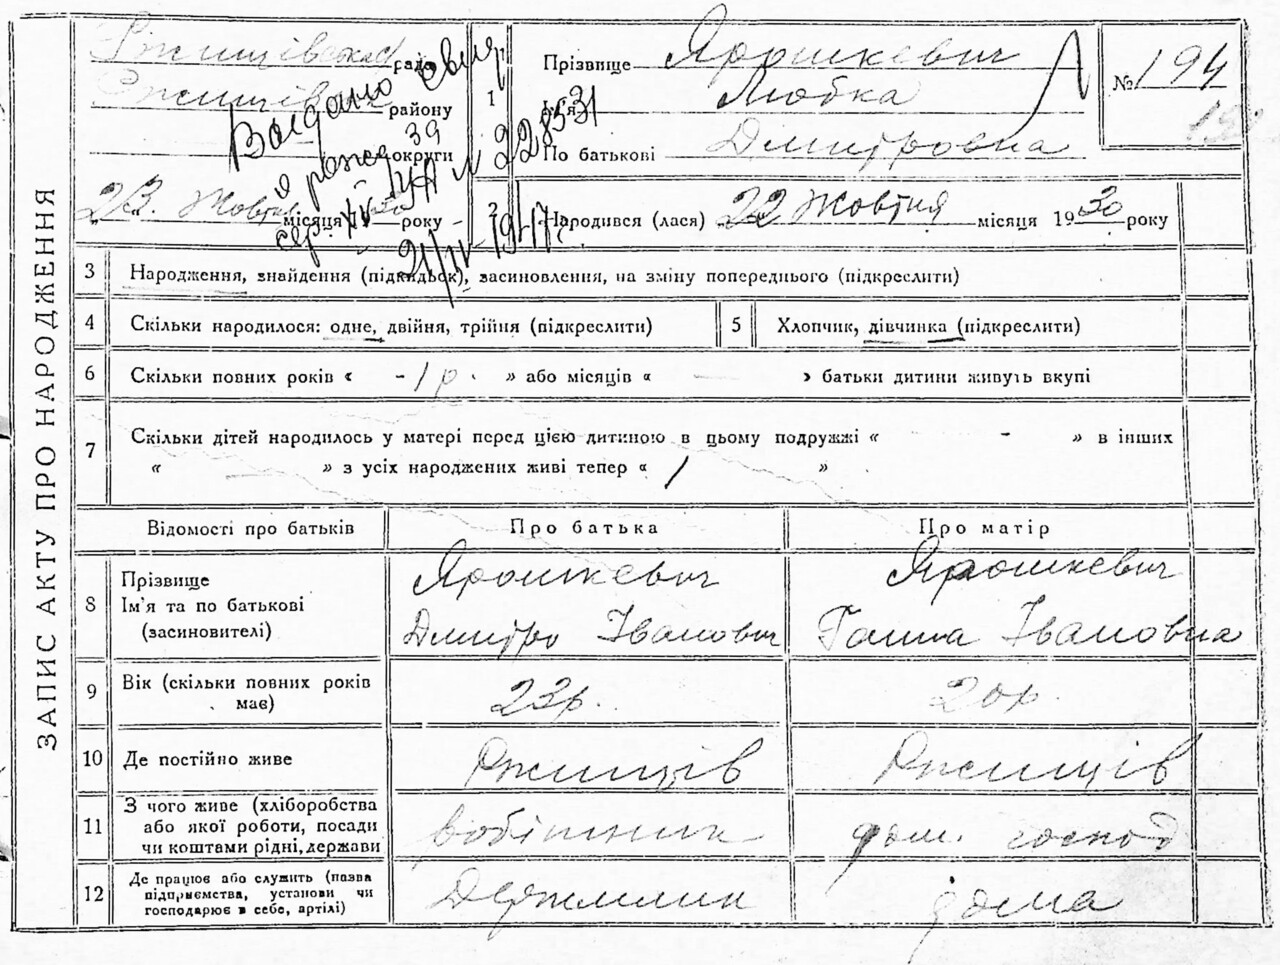 ЗАПИС АКТУ ПРО НАРОДЖЕННЯ
Ржищівська рада
Ржищів району
округи
23. Жовтня місяця 30 року
Видано свид
о рожд
сер. № 228531
21/IV-1947г
1
Прізвище Ярошкевич
Ім'я Любка
По батькові Дмитровна
№ 194
2
Народився (лася) 22 Жовтня місяця 1930 року
3 Народження, знайдення (підкидьок), засиновлення, на зміну попереднього (підкреслити)
4 Скільки народилося: одне, двійня, трійня (підкреслити)
5 Хлопчик, дівчинка (підкреслити)
6 Скільки повних років « - 1 р. » або місяців « — » батьки дитини живуть вкупі
7 Скільки дітей народилось у матері перед цією дитиною в цьому подружжі « - » в інших
« » з усіх народжених живі тепер « 1 »
Відомості про батьків
Про батька
Про матір
8 Прізвище
Ім'я та по батькові
(засиновителі)
Ярошкевич
Дмитро Іванович
Ярошкевич
Ганна Івановна
9 Вік (скільки повних років
має)
23р.
20р.
10 Де постійно живе
Ржищів
Ржищів
11 З чого живе (хліборобства
або якої роботи, посади
чи коштами рідні, держави
робітник
дом. господ
12 Де працює або служить (назва
підприємства, установи чи
господарює в себе, артілі)
Держмлин
дома